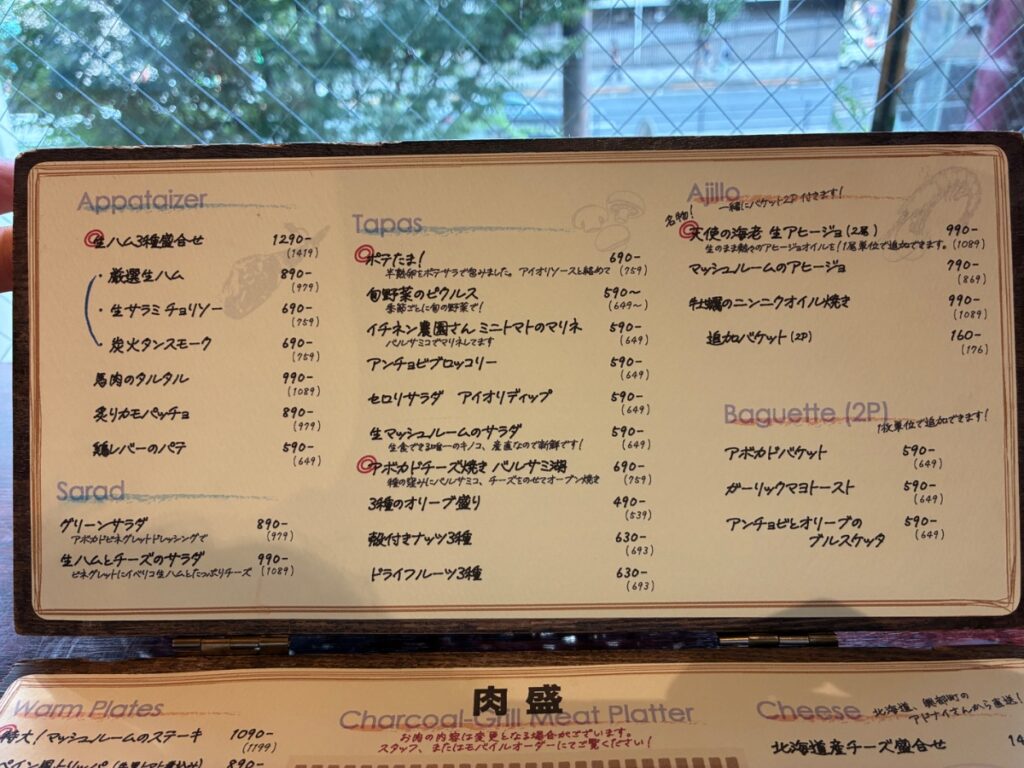 Appataizer
生ハム3種盛合せ 1290-
(1419)
・厳選生ハム 890-
(979)
・生サラミ チョリソー 690-
(759)
・炭火タンスモーク 690-
(759)
馬肉のタルタル 990-
(1089)
炙りカモパッチョ 890-
(979)
鶏レバーのパテ 590-
(649)
Sarad
グリーンサラダ 890-
アボカドビネグレットドレッシングで (979)
生ハムとチーズのサラダ 990-
ビネグレットにイベリコ生ハムとたっぷりチーズ (1089)
Tapas
ポテたま! 690-
半熟卵をポテサラで包みました。アイオリソースと絡めて (759)
旬野菜のピクルス 590~
季節ごとに旬の野菜で! (649~)
イチネン農園さん ミニトマトのマリネ 590-
バルサミコでマリネしてます (649)
アンチョビブロッコリー 590-
(649)
セロリサラダ アイオリディップ 590-
(649)
生マッシュルームのサラダ 590-
生食できる唯一のキノコ、産直なので新鮮です! (649)
アボカドチーズ焼き バルサミ湖 690-
種の窪みにバルサミコ、チーズをのせてオーブン焼き (759)
3種のオリーブ盛り 490-
(539)
殻付きナッツ3種 630-
(693)
ドライフルーツ3種 630-
(693)
Ajillo 一緒にバケット2P付きます!
名物!
天使の海老 生アヒージョ(2尾) 990-
生のまま熱々のアヒージョオイルを! 1尾単位で追加できます。 (1089)
マッシュルームのアヒージョ 790-
(869)
牡蠣のニンニクオイル焼き 990-
(1089)
追加バケット(2P) 160-
(176)
Baguette (2P) 1枚単位で追加できます!
アボカドバケット 590-
(649)
ガーリックマヨトースト 590-
(649)
アンチョビとオリーブの 590-
ブルスケッタ (649)
Warm Plates
特大!マッシュルームのステーキ 1090-
(1199)
890-
肉盛
Charcoal-Grill Meat Platter
お肉の内容は変更となる場合がございます。
スタッフ、またはモバイルオーダーにてご覧ください!
Cheese 北海道、興部町の
アドナイさんから直送!
北海道産チーズ盛合せ 14